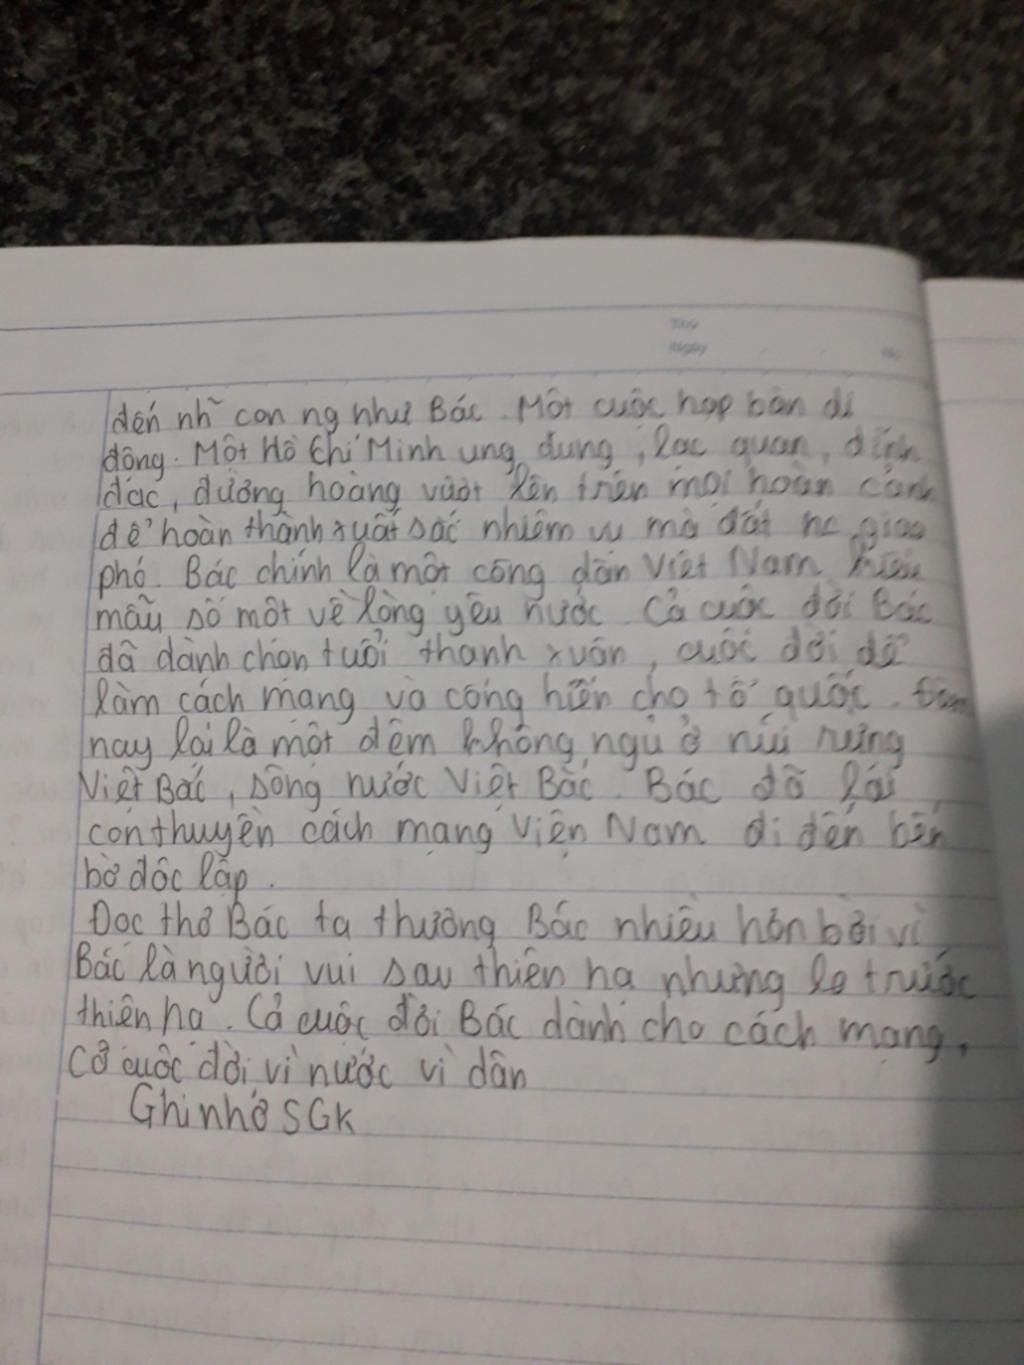 Thứ
Ngày
đến nh~ con ng như Bác. Một cuộc họp bàn di
động. Một Hồ Chí Minh ung dung, lạc quan, dĩnh
đạc, đường hoàng vượt lên trên mọi hoàn cảnh
để hoàn thành xuất sắc nhiệm vụ mà đất nc giao
phó. Bác chính là một công dân Việt Nam kiểu
mẫu số một về lòng yêu nước. Cả cuộc đời Bác
đã dành chọn tuổi thanh xuân, cuộc đời để
làm cách mạng và cống hiến cho tổ quốc. Đêm
nay lại là một đêm không ngủ ở núi rừng
Việt Bắc, sông nước Việt Bắc. Bác đã lái
con thuyền cách mạng Việt Nam đi đến bến
bờ độc lập.
Đọc thơ Bác ta thương Bác nhiều hơn bởi vì
Bác là người vui sau thiên hạ nhưng lo trước
thiên hạ. Cả cuộc đời Bác dành cho cách mạng,
cả cuộc đời vì nước vì dân
Ghi nhớ SGK